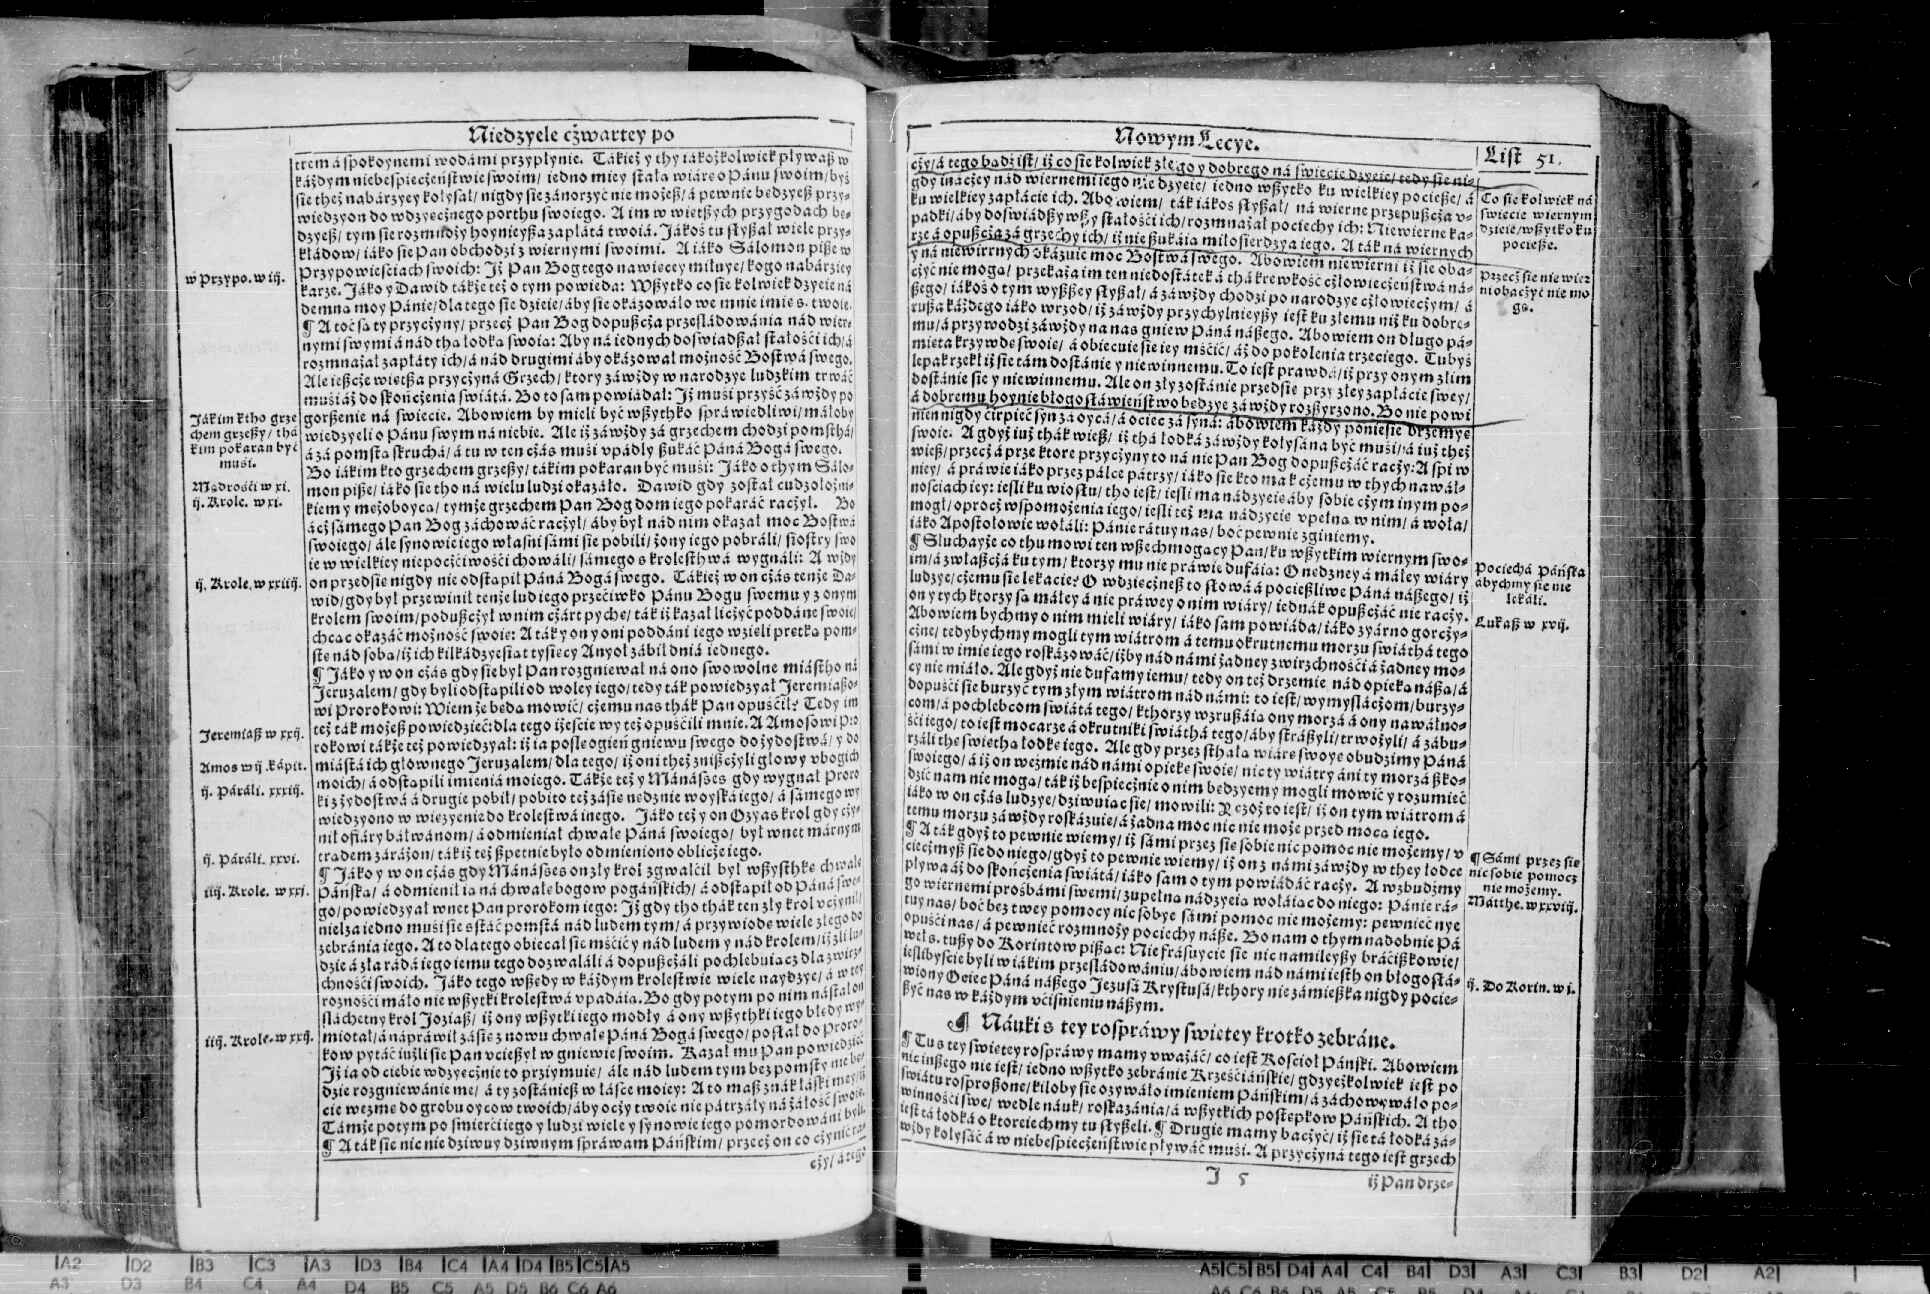 Niedzyele cżwartey po
trem á spokoynemi wodámi przypłynie. Tákież y thy iákożkolwiek pływaß w
káżdym niebespiecżeństwie swoim/ iedno miey stałą wiárę o Pánu swoim/ byś
sie też nabárzyey kołysał/ nigdy sie zánorzyć nie możeß/ á pewnie będzyeß przy-
wiedzyon do wdzyęcżnego porthu swoiego. A im w więtßych przygodach bę-
dzyeß/ tym sie rozmnoży hoynieyßa zapłátá twoiá. Jákoś tu słyßał wiele przy-
kłádow/ iáko sie Pan obchodzi z wiernymi swoimi. A iáko Sálomon piße w
Przypowieściach swoich: Iż Pan Bog tego nawięcey miłuye/ kogo nabárziey
karze. Jáko y Dawid tákże też o tym powieda: Wßytko co sie kolwiek dzyeie ná
demną moy Pánie/ dla tego sie dzieie/ áby sie okázowáło we mnie imię s. twoie.
¶ A toć są ty przycżyny/ przecż Pan Bog dopußcża prześládowánia nád wier-
nymi swymi á nád thą łodką swoią: Aby ná iednych doświádßał stałości ich/ á
rozmnażał zapłáty ich/ á nád drugimi áby okázował możność Bostwá swego.
Ale ießcże więtßa przycżyná Grzech/ ktory záwżdy w narodzye ludzkim trwáć
muśi áż do skońcżenia świátá. Bo to sam powiádał: Iż muśi przyść záwżdy po
gorßenie ná świecie. Abowiem by mieli być wßytko spráwiedliwi/ máłoby
wiedzyeli o Pánu swym ná niebie. Ale iż záwżdy zá grzechem chodzi pomsthá/
á zá pomstą skruchá/ á tu w ten cżás muśi vpádły ßukáć Páná Bogá swego.
Bo iákim kto grzechem grzeßy/ tákim pokaran być muśi: Jáko o thym Sálo-
mon piße/ iáko sie tho ná wielu ludzi okazáło. Dawid gdy został cudzołożni-
kiem y mężoboycą/ tymże grzechem Pan Bog dom iego pokaráć racżył. Bo
ácż sámego Pan Bog záchowáć racżył/ áby był nád nim okazał moc Bostwá
swoiego/ ále synowie iego własni sámi sie pobili/ żony iego pobráli/ siostry swo
ie w wielkiey niepocżciwości chowáli/ sámego s krolesthwá wygnáli: A wżdy
on przedsię nigdy nie odstąpił Páná Bogá swego. Tákież w on cżás tenże Da-
wid/ gdy był przewinił tenże lud iego przeciwko Pánu Bogu swemu y z onym
krolem swoim/ podußcżył w nim cżárt pychę/ ták iż kazał licżyć poddáne swoie/
chcąc okazáć możność swoię: A ták y on y oni poddáni iego wzięli prętką pom-
stę nád sobą/ iż ich kilkádzyesiąt tysięcy Anyoł zábił dniá iednego.
¶ Jáko y w on cżás gdy sie był Pan rozgniewał ná ono swowolne miástho ná
Jeruzalem/ gdy byli odstąpili od woley iego/ tedy ták powiedzyał Jeremiaßo-
wi Prorokowi: Wiem że będą mowić/ cżemu nas thák Pan opuścił? Tedy im
też ták możeß powiedzieć: dla tego iżeście wy też opuścili mnie. A Amosowi pro
rokowi tákże też powiedzyał: iż ia poślę ogień gniewu swego do żydostwá/ y do
miástá ich głownego Jeruzalem/ dla tego/ iż oni też znißcżyli głowy vbogich
moich/ á odstąpili imienia moiego. Tákże też y Mánásses gdy wygnał Proro
ki z żydostwá á drugie pobił/ pobito też zásię nędznie woyská iego/ á sámego wy
wiedzyono w więzyenie do krolestwá inego. Jáko też y on Ozyas krol gdy cży-
nił ofiáry báłwanom/ á odmieniał chwałę Páná swoiego/ był wnet márnym
trądem záráżon/ ták iż też ßpetnie było odmieniono oblicże iego.
¶ Jáko y w on cżás gdy Mánásses on zły krol zgwałcił był wßysthkę chwałę
Páńską/ á odmienił ią ná chwałę bogow pogáńskich/ á odstąpił od Páná swe-
go/ powiedzyał wnet Pan prorokom iego: Iż gdy tho thák ten zły krol vcżynił/
nielza iedno muśi sie sstáć pomstá nád ludem tym/ á przywiodę wiele złego do
zebránia iego. A to dla tego obiecał sie mścić y nád ludem y nád krolem/ iż źli lu-
dzie á zła rádá iego iemu tego dozwaláli á dopußcżáli pochlebuiąc z dla zwirz-
chności swoich. Jáko tego wßędy w káżdym krolestwie wiele naydzye/ á w tey
rozności máło nie wßytki krolestwá vpadáią. Bo gdy potym po nim nástał on
sláchetny krol Joziaß/ iż ony wßytki iego modły á ony wßythki iego błędy wy-
miotał/ á nápráwił zásię z nowu chwałę Páná Bogá swego/ posłał do proro-
kow pytáć iużli sie Pan vcießył w gniewie swoim. Kazał mu Pan powiedzieć
Iż ia od ciebie wdzyęcżnie to przyimuię/ ále nád ludem tym bez pomsty nie bę-
dzie rozgniewánie me/ á ty zostánieß w łásce moiey: A to maß znák łáski mey/ iż
cię wezmę do grobu oycow twoich/ áby ocży twoie nie pátrzáły ná żałość swoię.
Támże potym po śmierci iego y ludzi wiele y synowie iego pomordowáni byli.
¶ A ták sie nic nie dziwuy dziwnym spráwam Páńskim/ przecż on co cżynić ra-
cży/ á tego
w Przypo. w iij.
Jákim ktho grze
chem grzeßy/ thá
kim pokaran być
muśi.
Mądrości w xi.
ij. Krole. w xi.
ij. Krole. w xxiiij.
Jeremiaß w xxij.
Amos w ij. kápit.
ij. Páráli. xxxiij.
ij. Páráli. xxvi.
iiij. Krole. w xxi.
iiij. Krole. w xxij.
Nowym Lecye.
List 51.
cży/ á tego bądź ist/ iż co sie kolwiek złego y dobrego ná świecie dzyeie/ tedy sie ni-
gdy inácżey nád wiernemi iego nie dzyeie/ iedno wßytko ku wielkiey pocieße/ á
ku wielkiey zapłácie ich. Abowiem/ ták iákoś słyßał/ ná wierne przepußcża v-
padki/ áby doświádßył stałości ich/ rozmnażał pociechy ich: Niewierne ka-
rze á opußcża zá grzechy ich/ iż nie ßukáią miłosierdzya iego. A ták ná wiernych
y ná niewirnych okázuie moc Bostwá swego. Abowiem niewierni iż sie oba-
cżyć nie mogą/ przekaża im ten niedostátek á thá krewkość cżłowiecżeństwá ná-
ßego/ iákoś o tym wyßßey słyßał/ á záwżdy chodzi po narodzye cżłowiecżym/ á
rußa káżdego iáko wrzod/ iż záwżdy przychylnieyßy iest ku złemu niż ku dobre-
mu/ á przywodzi záwżdy ná nas gniew Páná náßego. Abowiem on długo pá-
mięta krzywdę swoię/ á obiecuie sie iey mścić/ áż do pokolenia trzeciego. Tu byś
lepak rzekł iż sie tám dostánie y niewinnemu. To iest prawdá/ iż przy onym złim
dostánie sie y niewinnemu. Ale on zły zostánie przedsię przy złey zapłácie swey/
á dobremu hoynie błogosłáwieństwo będzye záwżdy rozßyrzono. Bo nie powi
nien nigdy cirpieć syn zá oycá/ á ociec zá syná: ábowiem káżdy poniesie brzemyę
swoie. A gdyż iuż thák wieß/ iż thá łodká záwżdy kołysána być muśi/ á iuż też
wieß/ przecż á prze ktore przycżyny to ná nię Pan Bog dopußcżáć racży: A śpi w
niey/ á práwie iáko przez pálce pátrzy/ iáko sie kto ma k cżemu w thych nawał-
nościach iey: iesli ku wiosłu/ tho iest/ iesli ma nádzyeię áby sobie cżym inym po-
mogł/ oprocż wspomożenia iego/ iesli też ma nádzyeię vpełną w nim/ á woła/
iáko Apostołowie woláli: Pánie rátuy nas/ boć pewnie zginiemy.
¶ Słuchayże co thu mowi ten wßechmogący Pan/ ku wßytkim wiernym swo-
im/ á zwłaßcżá ku tym/ ktorzy mu nie práwie dufáią: O nędzney á máłey wiáry
ludzye/ cżemu sie lękacie? O wdzięcżneß to słowá á pocießliwe Páná náßego/ iż
on y tych ktorzy są máłey á nie práwey o nim wiáry/ iednák opußcżáć nie racży.
Abowiem bychmy o nim mieli wiáry/ iáko sam powiáda/ iáko zyárno gorcży-
cżne/ tedy bychmy mogli tym wiátrom á temu okrutnemu morzu świáthá tego
sámi w imię iego roskázowáć/ iżby nád námi żadney zwirzchności á żadney mo-
cy nie miáło. Ale gdyż nie dufamy iemu/ tedy on też drzemie nád opieką náßą/ á
dopuści sie burzyć tym złym wiátrom nád námi: to iest/ wymyślácżom/ burzy-
com/ á pochlebcom świátá tego/ kthorzy wzrußáią ony morzá á ony nawałno-
ści iego/ to iest mocarze á okrutniki świáthá tego/ áby stráßyli/ trwożyli/ á zábu-
rzáli thę świethą łodkę iego. Ale gdy przez sthałą wiárę swoyę obudzimy Páná
swoiego/ á iż on weźmie nád námi opiekę swoię/ nic ty wiátry áni ty morzá ßko-
dzić nam nie mogą/ ták iż bespiecżnie o nim będzyemy mogli mowić y rozumieć
iáko w on cżás ludzye/ dziwuiąc sie/ mowili: I cżoż to iest/ iż on tym wiátrom á
temu morzu záwżdy roskázuie/ á żadna moc nic nie może przed mocą iego.
¶ A ták gdyż to pewnie wiemy/ iż sámi przez się sobie nic pomoc nie możemy/ v
ciecżmyß sie do niego/ gdyż to pewnie wiemy/ iż on z námi záwżdy w they łodce
pływa áż do skońcżenia świátá/ iáko sam o tym powiádáć racży. A wzbudźmy
go wiernemi prośbámi swemi/ zupełną nádzyeią woláiąc do niego: Pánie rá-
tuy nas/ boć bez twey pomocy nic sobye sámi pomoc nie możemy: pewnieć nye
opuści nas/ á pewnieć rozmnoży pociechy náße. Bo nam o thym nadobnie Pá
weł s. tußy do Korintow pißąc: Nie frásuycie sie nic namileyßy bráciszkowie/
ieslibyście byli w iákim prześládowániu/ ábowiem nád námi iesth on błogosłá-
wiony Ociec Páná náßego Jezusá Krystusá/ kthory nie zámießka nigdy pocie-
ßyć nas w káżdym vciśnieniu náßym.
¶ Náuki s tey rospráwy świętey krotko zebráne.
¶ Tu s tey świętey rospráwy mamy vważáć/ co iest Kościoł Páński. Abowiem
nic inßego nie iest/ iedno wßytko zebránie Krześcijáńskie/ gdzyeżkolwiek iest po
świátu rosproßone/ kiloby sie ozywáło imieniem Páńskim/ á záchowywáło po-
winności swe/ wedle náuk/ roskazánia/ á wßytkich postępkow Páńskich. A tho
iest tá łodká o ktoreiechmy tu słyßeli. ¶ Drugie mamy bacżyć/ iż sie tá łodká zá-
wżdy kołysáć á w niebespiecżeństwie pływáć muśi. A przycżyná tego iest grzech
J 5
iż Pan drze-
Co sie kolwiek ná
świecie wiernym
dzieie/ wßytko ku
pocieße.
Przecż sie nie wier
ni obacżyć nie mo
gą.
Pociechá Páńska
ábychmy sie nie
lękáli.
Lukaß w xvij.
¶ Sámi przez się
nic sobie pomocz
nie możemy.
Mátthe. w xxviij.
ij. Do Korin. w i.